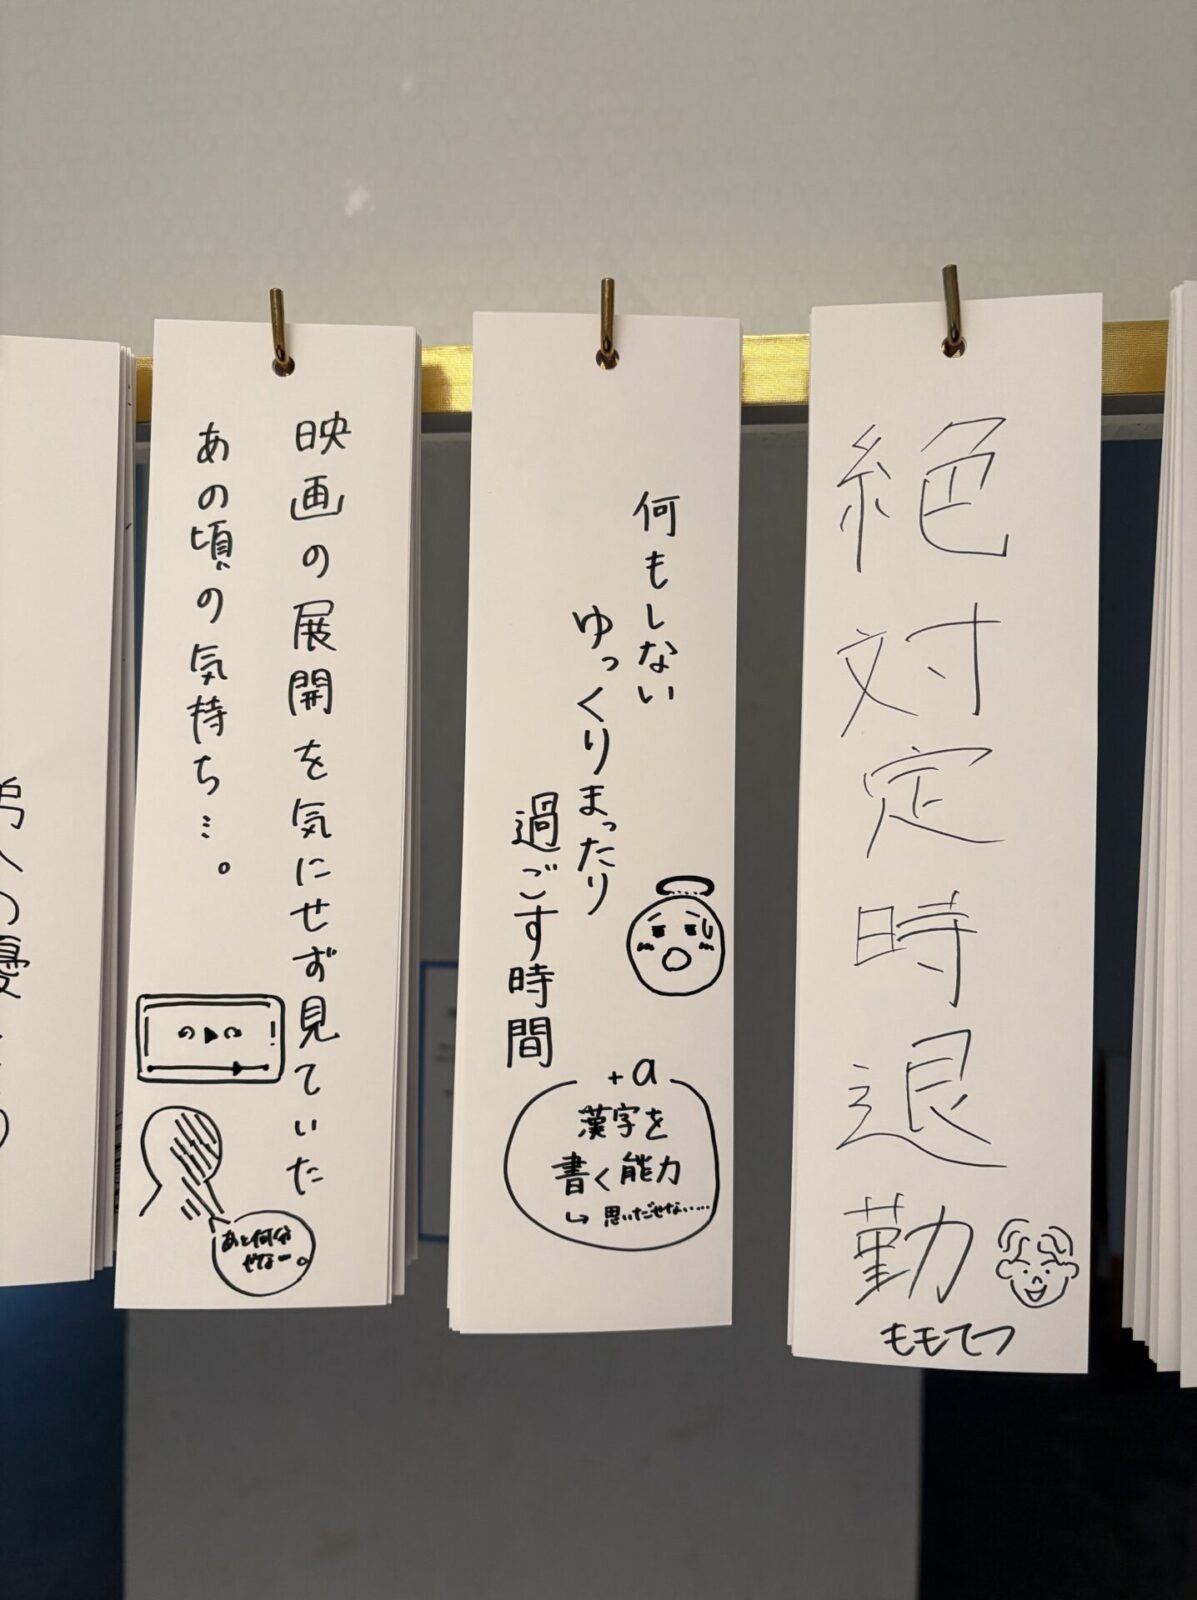 絶対定時退勤
ももてつ
何もしない
ゆっくりまったり
過ごす時間
+α
漢字を
書く能力
↳思いだせない……
映画の展開を気にせず見ていた
あの頃の気持ち…。
あと何分
やなー。